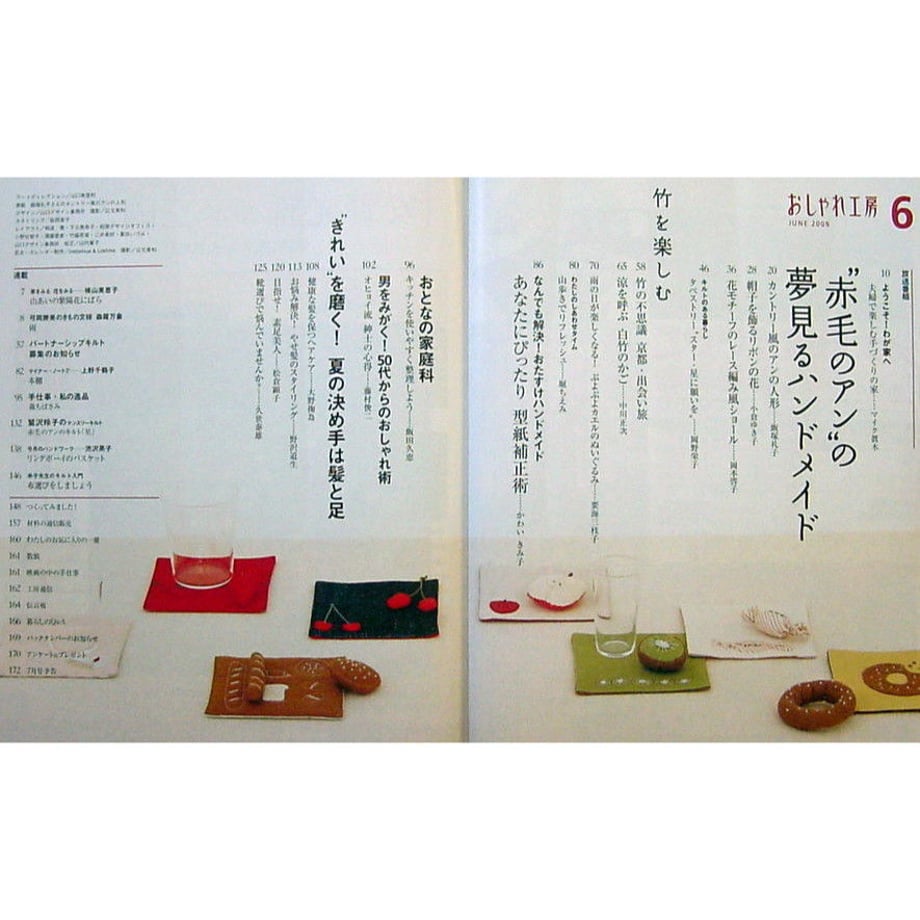 おしゃれ工房 6
JUNE 2008
放送番組
10 ようこそ!わが家へ
夫婦で楽しむ手づくりの家……マイク眞木
"赤毛のアン"の
夢見るハンドメイド
20 カントリー風のアンの人形……飯塚礼子
28 帽子を飾るリボンの花……小倉ゆき子
36 花モチーフのレース編み風ショール……岡本啓子
46 キルトのある暮らし
タペストリー "スター・星に願いを"……岡野栄子
竹を楽しむ
58 竹の不思議 京都・出会い旅
65 涼を呼ぶ 白竹のかご……中川正次
70 雨の日が楽しくなる! ぷよぷよカエルのぬいぐるみ……粟海三枝子
80 わたしのしあわせタイム
山歩きでリフレッシュ……堀ちえみ
86 なんでも解決!おたすけハンドメイド
あなたにぴったり 型紙補正術……かわいきみ子
おとなの家庭科
96 キッチンを使いやすく整理しよう……飯田久恵
男をみがく!50代からのおしゃれ術
102 オヒョイ流 紳士の心得……藤村俊二
"きれい"を磨く! 夏の決め手は髪と足
108 健康な髪を保つヘアケア……大野
113 お悩み解決! やせ髪のスタイリング……野沢道生
120 目指せ! 素足美人……松倉
125 靴選びで悩んでいませんか?……久世泰雄
連載
7 横山美恵子
山あいの紫陽花にばら
8 弓岡勝美のきもの文様 森羅万象
雨
52 パートナーシップキルト
募集のお知らせ
82 マイナー・ノートで……上野千鶴子
本棚
95 手仕事・私の逸品
裁ちばさみ
132 鷲沢玲子のマンスリーキルト
赤毛のアンのキルト「星」
138 今月のハンドワーク……渋沢英子
リングボーイのバスケット
146 キルト入門
布選びをしましょう
148 つくってみました!
157 材料の通信販売
160 わたしのお気に入りの一冊
161 数独
161 映画の中の手仕事
162 工房通信
164 伝言板
166 暮らしの
169 バックナンバーのお知らせ
170 アンケート&プレゼント
172 7月号予告